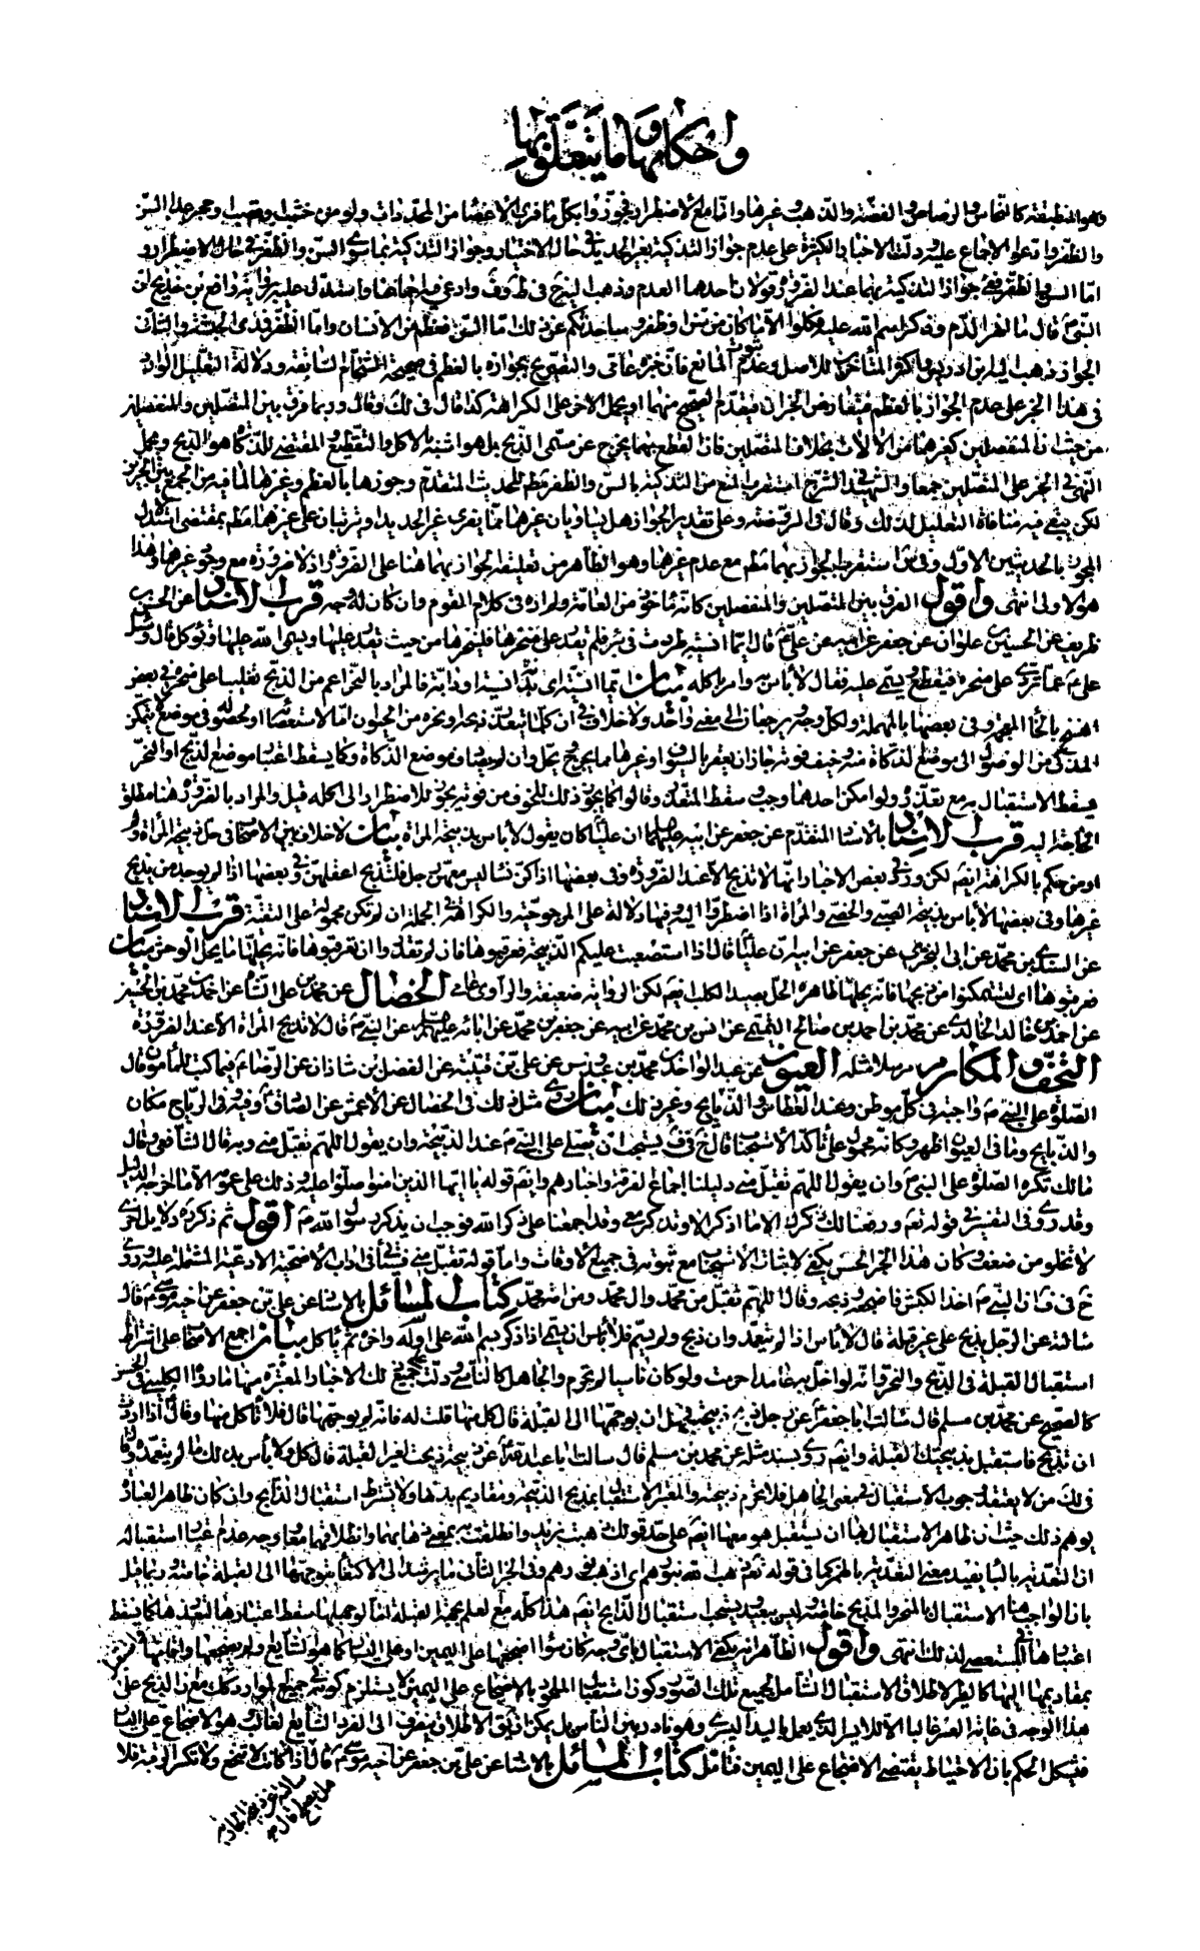 واحكامها وما يتعلق بها
والمنطبقة كالنحاس والرصاص والفضة والذهب وغيرها واما مع الاضطرار فجوزوا بكل ما فرى الاعضا من المحددات ولو من خشب او قصب او حجر عدا السن
والظفر وادعوا الاجماع عليه ودلت الاخبار الكثيرة على عدم جواز التذكية بغير الحديد في حال الاختيار وجواز التذكية بما سوى السن والظفر في حال الاضطرار و
اما السن والظفر ففي جواز التذكية بهما عند الضرورة قولان احدهما العدم وذهب اليه الشيخ في ط وف وادعى فيه اجماعنا واستدل عليه برواية رافع بن خديج ان
النبي ص قال ما انهر الدم وذكر اسم الله عليه فكلوا الا ما كان من سن او ظفر وساحدثكم عن ذلك اما السن فعظم من الانسان واما الظفر فمدى الحبشة والثاني
الجواز ذهب اليه ابن ادريس واكثر المتأخرين للاصل وعدم ثبوت المانع فان خبره عامي والتصريح بجوازه بالعظم في صحيحة الشحام السابقة ودلالة التعليل الوارد
في هذا الخبر على عدم الجواز بالعظم فيتعارض الخبران فيقدم الصحيح منهما او يحمل الاخر على الكراهة كذا قال في لك وقال وربما فرق بين المتصلين والمنفصلين
من حيث ان المنفصلين كغيرهما من الالات بخلاف المتصلين فان القطع بهما يخرج عن مسمى الذبح بل هو اشبه بالاكل والتقطيع والمقتضى للذكاة هو الذبح ويحمل
النهي في الخبر على المتصلين جمعا والشهيد في الشرح استقرب المنع من التذكية بالسن والظفر مطلقا للحديث المتقدم وجوزها بالعظم وغيرهما لما فيه من الجمع بين الخبرين
لكن يبقى فيه منافاة التعليل لذلك وقال في الروضة وعلى تقدير الجواز هل يساويان غيرهما مما يفري غير الحديد او يترتبان على غيرهما مطلقا بمقتضى استدلال
المجوز بالحديثين الاول وفي س استقرب الجواز بهما مطلقا مع عدم غيرهما وهو الظاهر من تعليقه الجواز بهما هنا على الضرورة اذ لا ضرورة مع وجود غيرهما وهذا
هو الاولى انتهى واقول الفرق بين المتصلين والمنفصلين كانه مأخوذ من العامة ولم اره في كلام القوم وان كان له وجه قرب الاسناد عن الحسن بن
ظريف عن الحسين بن علوان عن جعفر عن ابيه عن علي ع قال ايما انسية تردت في بئر فلم يقدر على منحرها فلينحرها من حيث يقدر عليها ويسمي الله عليها وتؤكل قال وسئل
علي ع عما تردى على منحره فيقطع ويسمى عليه فقال لا بأس به وامر باكله بيان ايما انسية اي بدنة انسية او دابة فالمراد بالنحر اعم من الذبح تغليبا على منحره في بعض
النسخ بالخاء المعجمة وفي بعضها بالمهملة ولكل وجه يرجعان الى معنى واحد ولا خلاف في ان كلما يتعذر ذبحه او نحره من الحيوان اما لاستعصائه او لحصوله في موضع لا يتمكن
المذكي من الوصول الى موضع الذكاة منه وخيف فوته جاز ان يعقر بالسيوف او غيرها مما يجرح ويحل وان لم يصادف موضع الذكاة وكما يسقط اعتبار موضع الذبح او النحر
يسقط الاستقبال به مع تعذره ولو امكن احدهما وجب وسقط المتعذر وقالوا كما يجوز ذلك للخوف من فوته يجوز للاضطرار الى اكله قبل والمراد بالضرورة هنا مطلق
الحاجة اليه قرب الاسناد بالاسناد المتقدم عن جعفر عن ابيه ع ان عليا كان يقول لا بأس بذبيحة المرأة بيان لا خلاف بين الاصحاب في حل ذبيحة المرأة ولم
ار من حكم بالكراهة ايضم لكن ورد في بعض الاخبار انها لا تذبح الا عند الضرورة وفي بعضها اذا كن نساء ليس معهن رجل فلتذبح اعقلهن وفي بعضها اذا لم يوجد من يذبح
غيرها وفي بعضها لا بأس بذبيحة الصبي والخصي والمرأة اذا اضطروا اليه وفيها دلالة على المرجوحية والكراهة في الجملة ان لم تكن محمولة على التقية قرب الاسناد
عن السندي بن محمد عن ابي البختري عن جعفر عن ابيه ان عليا قال اذا استصعبت عليكم الذبيحة فعرقبوها فان لم تقدروا ان تعرقبوها فانه يحلها ما يحل الوحش بيان
فعرقبوها اي لتتمكنوا من ذبحها فانه يحلها ظاهره الحل بصيد الكلب ايضم لكن الرواية ضعيفة والراوي عامي الخصال عن محمد بن علي الشاه عن احمد بن محمد بن الحسين
عن احمد بن خالد الخالدي عن محمد بن احمد بن صالح التميمي عن انس بن محمد عن ابيه عن جعفر بن محمد عن ابائه ع عن النبي ص قال لا تذبح المرأة الا عند الضرورة
التحف والمكارم مرسلا مثله العيون عن عبد الواحد بن محمد بن عبدوس عن علي بن قتيبة عن الفضل بن شاذان عن الرضا ع فيما كتب للمأمون قال
الصلوة على النبي ص واجبة في كل موطن وعند العطاس والذبايح وغير ذلك بيان روى مثل ذلك في الخصال عن الاعمش عن الصادق ع وفيه والرياح مكان
والذبايح وما في العيون اظهر وكانه محمول على تأكد الاستحباب قال الشيخ في ف يستحب ان يصلي على النبي ص عند الذبيحة وان يقول اللهم تقبل مني وبه قال الشافعي وقال
مالك تكره الصلوة على النبي ص وان يقول اللهم تقبل مني دليلنا اجماع الفرقة واخبارهم وايضم قوله يا ايها الذين امنوا صلوا عليه وذلك على عمومه الا ما اخرجه الدليل
وقد روى في التفسير في قوله تعم ورفعنا لك ذكرك الا ما اذكر الا وتذكر معي وقد اجمعنا على ذكر الله فوجب ان يذكر رسول الله ص اقول ثم ذكر ره دلايل اخرى
لا تخلو من ضعف وكان هذا الخبر الحسن يكفي لاثبات الاستحباب مع ثبوته في جميع الاوقات واما قوله تقبل مني فستأتي في اداب الاضحية الادعية المشتملة عليه وروى
خ في ف ان النبي ص اخذ الكبش فاضجعه وذبحه وقال اللهم تقبل من محمد وال محمد ومن امة محمد كتاب المسائل بالاسناد عن علي بن جعفر عن اخيه موسى ع قال
سالته عن الرجل يذبح على غير قبلة قال لا بأس اذا لم يتعمد وان ذبح ولم يسم فلا بأس ان يسمي اذا ذكر بسم الله على اوله واخره ثم يأكل بيان اجمع الاصحاب على اشتراط
استقبال القبلة في الذبح والنحر وانه لو اخل به عامدا حرمت ولو كان ناسيا لم تحرم والجاهل كالناسي ودلت على جميع ذلك الاخبار المعتبرة منها ما رواه الكليني في الحسن
كالصحيح عن محمد بن مسلم قال سالت ابا جعفر ع عن رجل ذبح ذبيحة فجهل ان يوجهها الى القبلة قال كل منها قلت له فانه لم يوجهها قال فلا تأكل منها وقال ع اذا اردت
ان تذبح فاستقبل بذبيحتك القبلة وايضم روى بسند مثله عن محمد بن مسلم قال سالت ابا عبد الله ع عن ذبيحة ذبحت لغير القبلة قال كل ولا بأس بذلك ما لم يتعمده وقال
في لك من لا يعتقد وجوب الاستقبال في معنى الجاهل فلا يحرم ذبيحته والمعتبر الاستقبال بمذبح الذبيحة ومقاديم بدنها ولا يشترط استقبال الذابح وان كان ظاهر العبارة
يوهم ذلك حيث ان ظاهر الاستقبال بها ان يستقبل هو معها ايضم على حد قولك ذهبت بزيد وانطلقت به بمعنى ذهابهما وانطلاقهما معا ووجه عدم اعتبار استقباله
ان التعدية بالباء يفيد معنى التعدية بالهمزة كما في قوله تعم ذهب الله بنورهم اي اذهب نورهم وفي الخبر الثاني ما يرشد الى الاكتفاء بتوجيهها الى القبلة خاصة وربما قيل
بان الواجب هنا الاستقبال بالمنحر والمذبح خاصة وليس ببعيد ويستحب استقبال الذابح ايضم هذا كله مع العلم بجهة القبلة اما لو جهلها سقط اعتبارها لتعذرها كما يسقط
اعتبارها في المستعصي لذلك انتهى واقول الظاهر انه يكفي الاستقبال باي وجه كان سواء اضجعها على اليمين او على اليسار كما هو الشايع او لم يضجعها واقامها واستقبل
بمقاديمها اليها كالطير لاطلاق الاستقبال الشامل لجميع تلك الصور وكون استقبال الملحود بالاضجاع على اليمين لا يستلزم كونه في جميع الموارد كذلك مع ان الذبح على
هذا الوجه في غاية العسر غالبا الا للايسر الذي يعمل باليد اليسرى وهو نادر بين الناس بل يمكن ان يق الاطلاق ينصرف الى الفرد الشايع الغالب وهو الاضجاع على اليسار
فيشكل الحكم بان الاحتياط يقتضي الاضجاع على اليمين فتامل كتاب المسائل بالاسناد عن علي بن جعفر عن اخيه موسى ع قال اذا كانت لا تنخع ولا تكسر الرقبة فلا
سالته عن ذبيحة الجارية
هل تصلح قال